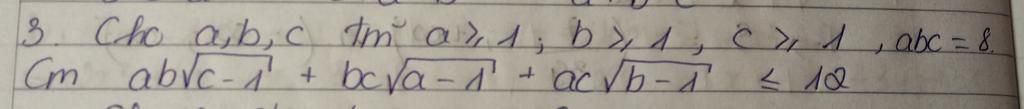 3. Cho a, b, c tm~ a ≥ 1; b ≥ 1, c ≥ 1, abc = 8.
Cm ab√c-1 + bc√a-1 + ac√b-1 ≤ 12